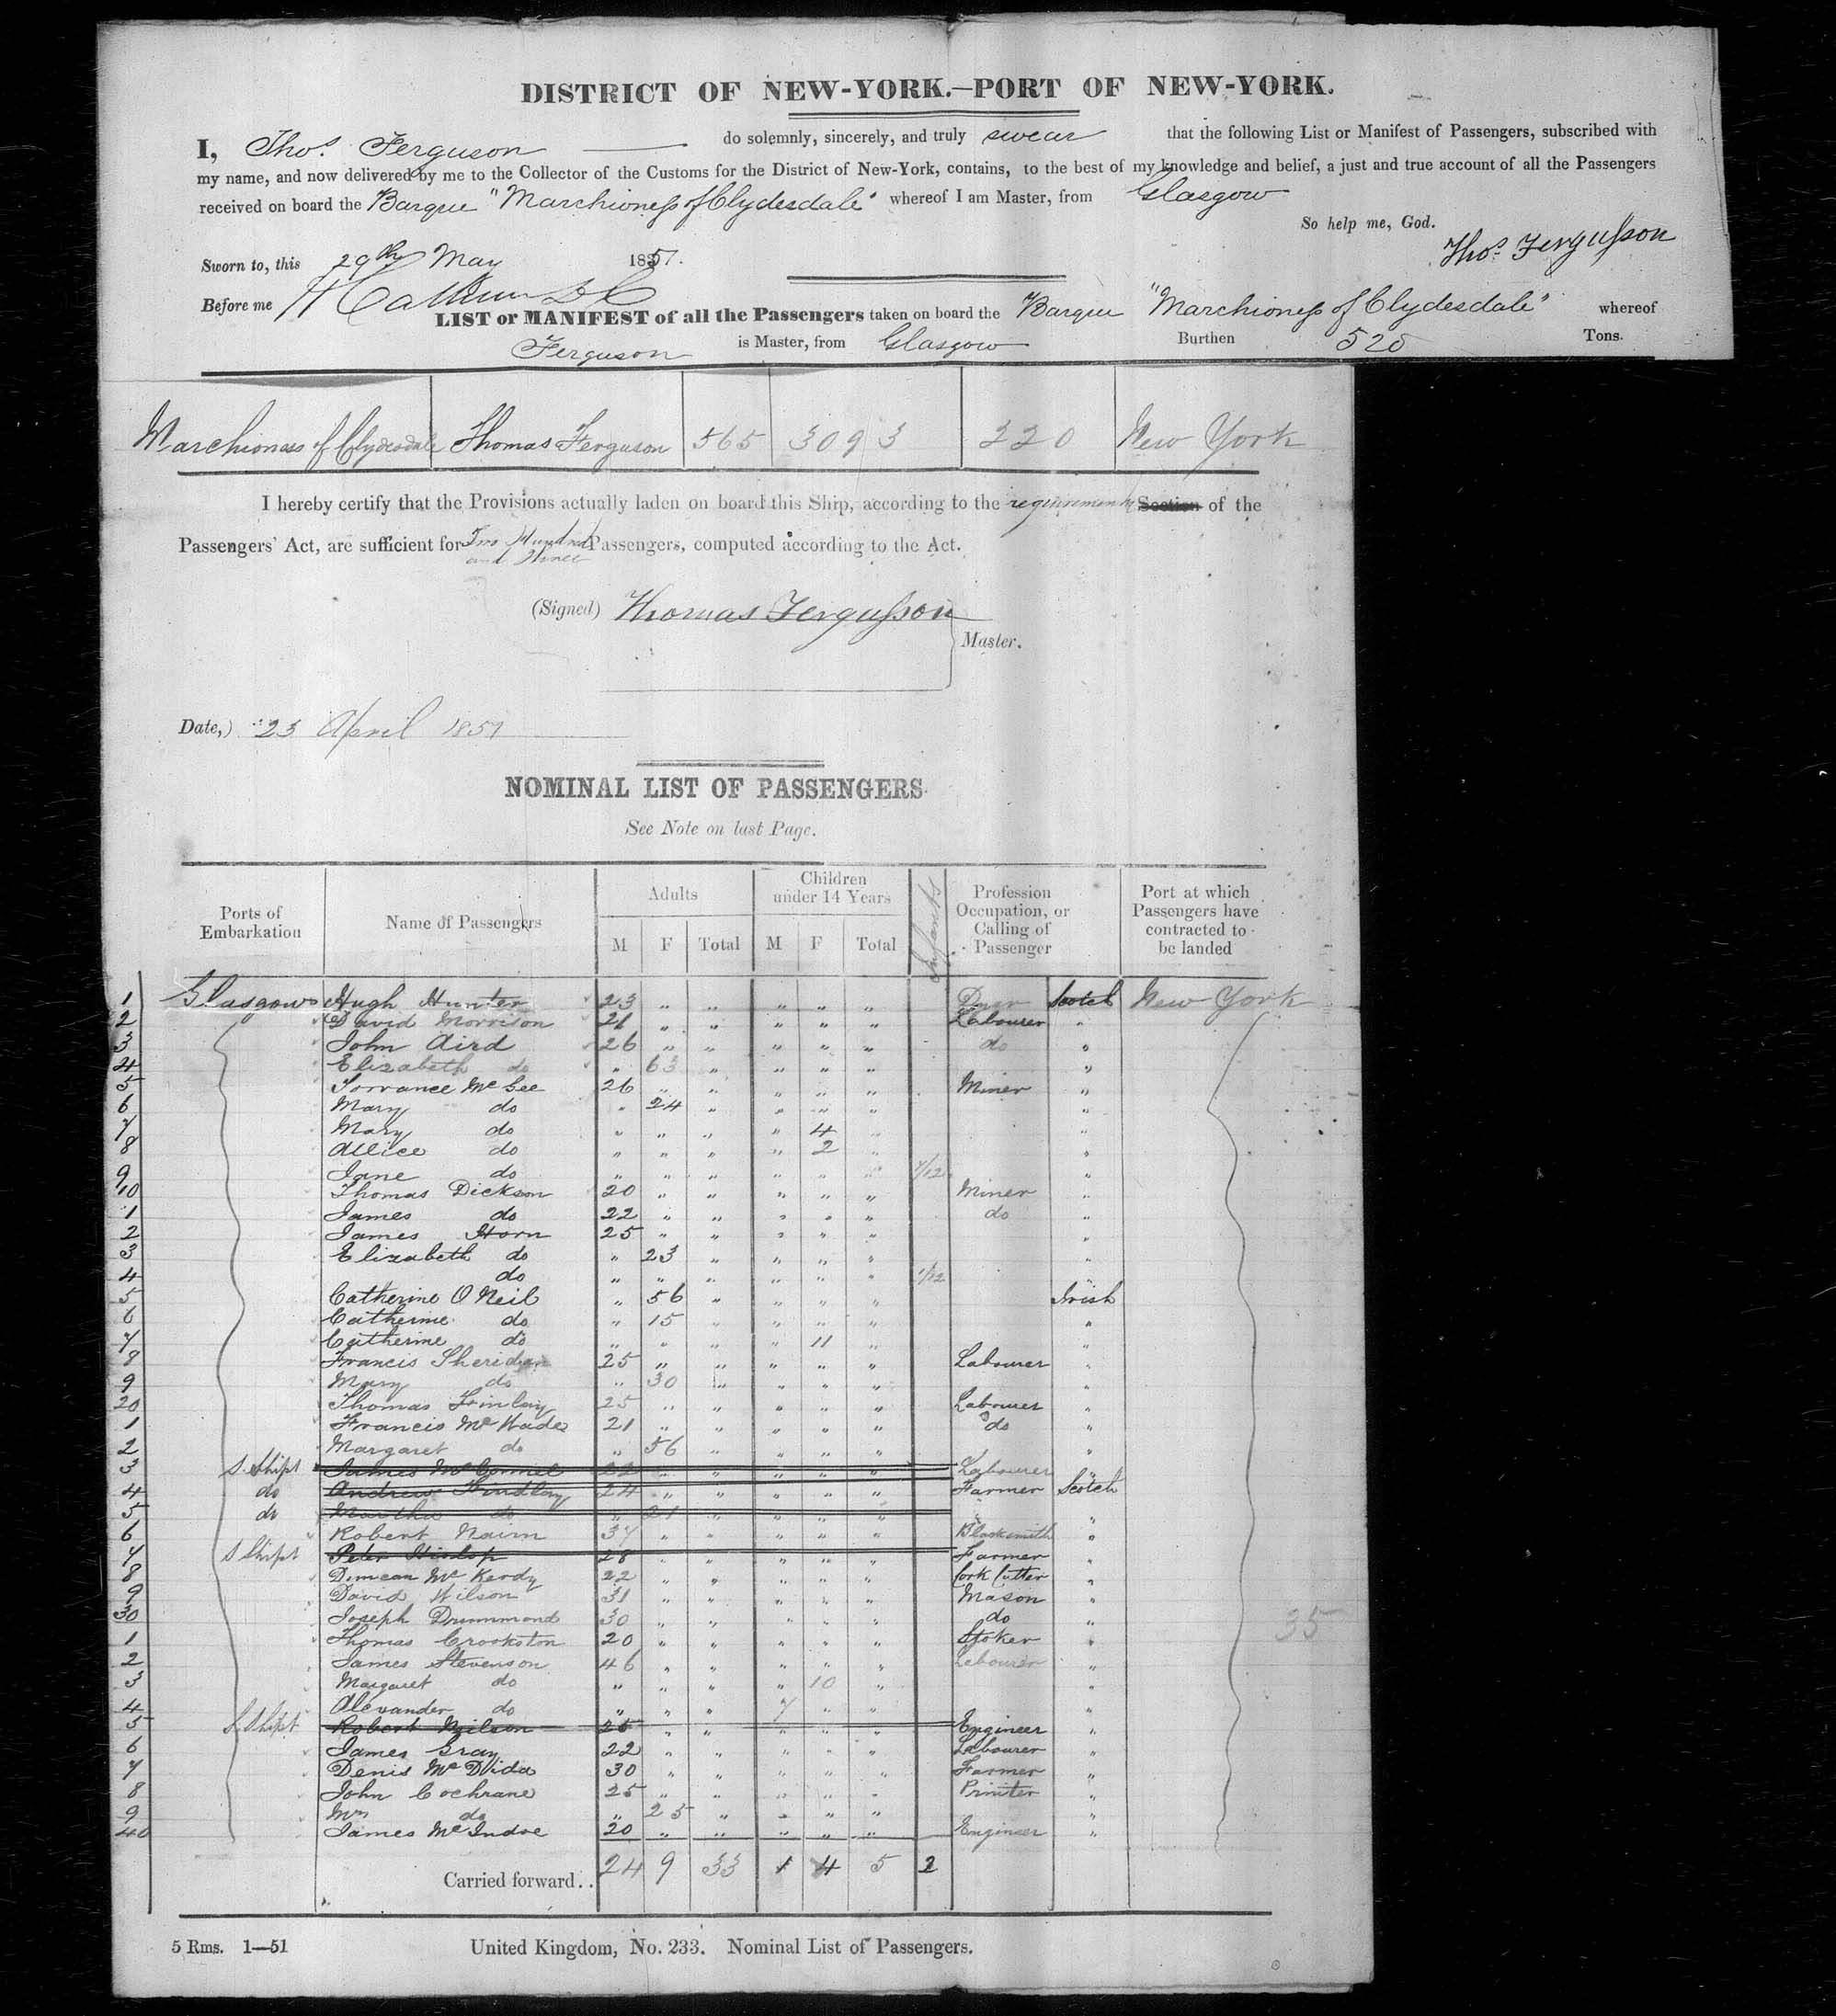 DISTRICT OF NEW-YORK.—PORT OF NEW-YORK.
I, Thos. Ferguson do solemnly, sincerely, and truly swear that the following List or Manifest of Passengers, subscribed with
my name, and now delivered by me to the Collector of the Customs for the District of New-York, contains, to the best of my knowledge and belief, a just and true account of all the Passengers
received on board the Barque "Marchioness of Clydesdale" whereof I am Master, from Glasgow
So help me, God.
Thos. Fergusson
Sworn to, this 29th May 1851.
Before me
LIST or MANIFEST of all the Passengers taken on board the Barque "Marchioness of Clydesdale" whereof
Ferguson is Master, from Glasgow Burthen 520 Tons.
Marchioness of Clydesdale Thomas Ferguson 565 3093 220 New York
I hereby certify that the Provisions actually laden on board this Ship, according to the requirements Section of the
Passengers' Act, are sufficient for Two Hundred and three Passengers, computed according to the Act.
(Signed) Thomas Fergusson
Master.
Date,) 23 April 1851
NOMINAL LIST OF PASSENGERS
See Note on last Page.
Ports of Embarkation Name of Passengers Adults M F Total Children under 14 Years M F Total Infants Profession Occupation, or Calling of Passenger Port at which Passengers have contracted to be landed
1 Glasgow Hugh Hunter 23 " " " " " Scotch New York
2 David Morrison 21 " " " " " Labourer "
3 John Aird 26 " " " " " do "
4 Elizabeth do " 63 " " " " "
5 Torrance McGee 26 " " " " " Miner "
6 Mary do " 24 " " " " "
7 Mary do " " " " 4 " "
8 Allice do " " " " 2 " "
9 Jane do " " " " " " 7/12 "
10 Thomas Dickson 20 " " " " " Miner "
1 James do 22 " " " " " do "
2 James Horn 25 " " " " " "
3 Elizabeth do " 23 " " " " "
4 do " " " " " " 1/12 "
5 Catherine O Neil " 56 " " " " Irish
6 Catherine do " 15 " " " " "
7 Catherine do " " " " 11 " "
8 Francis Sheridan 25 " " " " " Labourer "
9 Mary do " 30 " " " " "
20 Thomas Finlay 25 " " " " " Labourer "
1 Francis McWade 21 " " " " " do "
2 Margaret do " 56 " " " " "
3 S. Shipt James McConnel 22 " " " " " Labourer "
4 do Andrew Findlay 24 " " " " " Farmer Scotch
5 do Martha do " 21 " " " " "
6 Robert Nairn 37 " " " " " Blacksmith "
7 S Shipt Peter Hislop 28 " " " " " Farmer "
8 Duncan McKerdy 22 " " " " " Cork Cutter "
9 David Wilson 31 " " " " " Mason "
30 Joseph Drummond 30 " " " " " do " 35
1 Thomas Crookston 20 " " " " " Stoker "
2 James Stevenson 46 " " " " " Labourer "
3 Margaret do " " " " 10 " "
4 Alexander do " " " 7 " " "
5 S. Shipt Robert Neilson 25 " " " " " Engineer "
6 James Gray 22 " " " " " Labourer "
7 Denis McDida 30 " " " " " Farmer "
8 John Cochrane 25 " " " " " Printer "
9 Mrs do " 25 " " " " "
40 James McIndoe 20 " " " " " Engineer "
Carried forward.. 24 9 33 1 4 5 2
5 Rms. 1—51 United Kingdom, No. 233. Nominal List of Passengers.